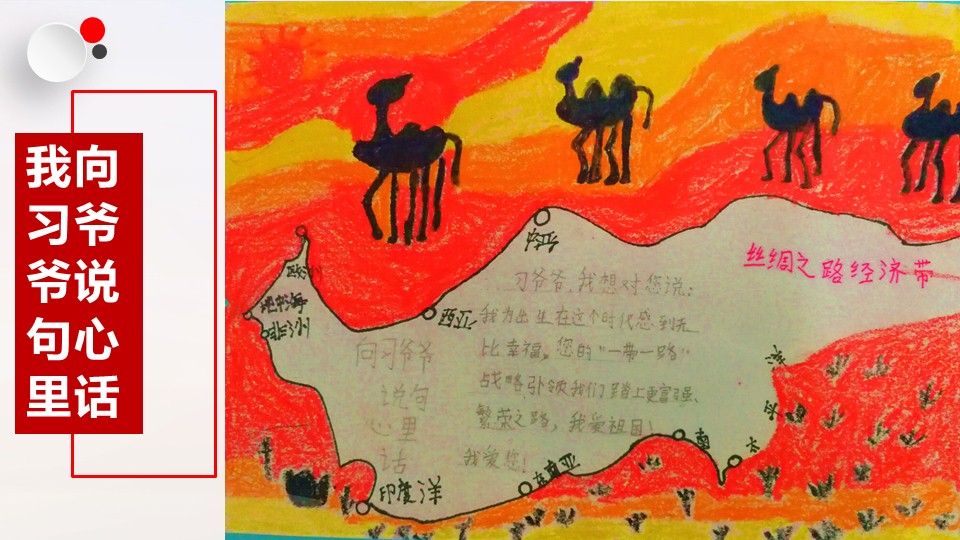 我向
习爷
爷说
句心
里话
丝绸之路经济带
习爷爷,我想对您说:
我为出生在这个时代感到无
比幸福,您的“一带一路”
战略引领我们踏上更富强、
繁荣之路,我爱祖国!
我爱您!
向习爷爷
说句
心里
话
欧洲
地中海
非洲
印度洋
东南亚
南